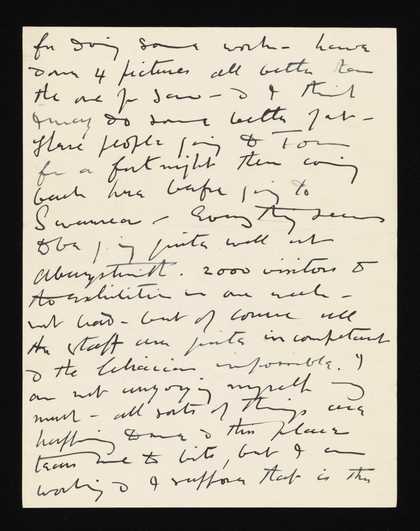 for doing some work – have
done 4 pictures all better than
the one you saw – & I think
I may do some better yet –
These people going to Town
for a fortnight then coming
back here before going to
Swansea – Everything seems
to be going quite well at
Aberystwith. 2000 visitors to
the exhibition in one week –
not bad – but of course all
the staff are quite incompetent
& the librarian impossible. I
am not enjoying myself
much – all sorts of things are
happening & this place
tears me to bits, but I am
working & I suppose that is the